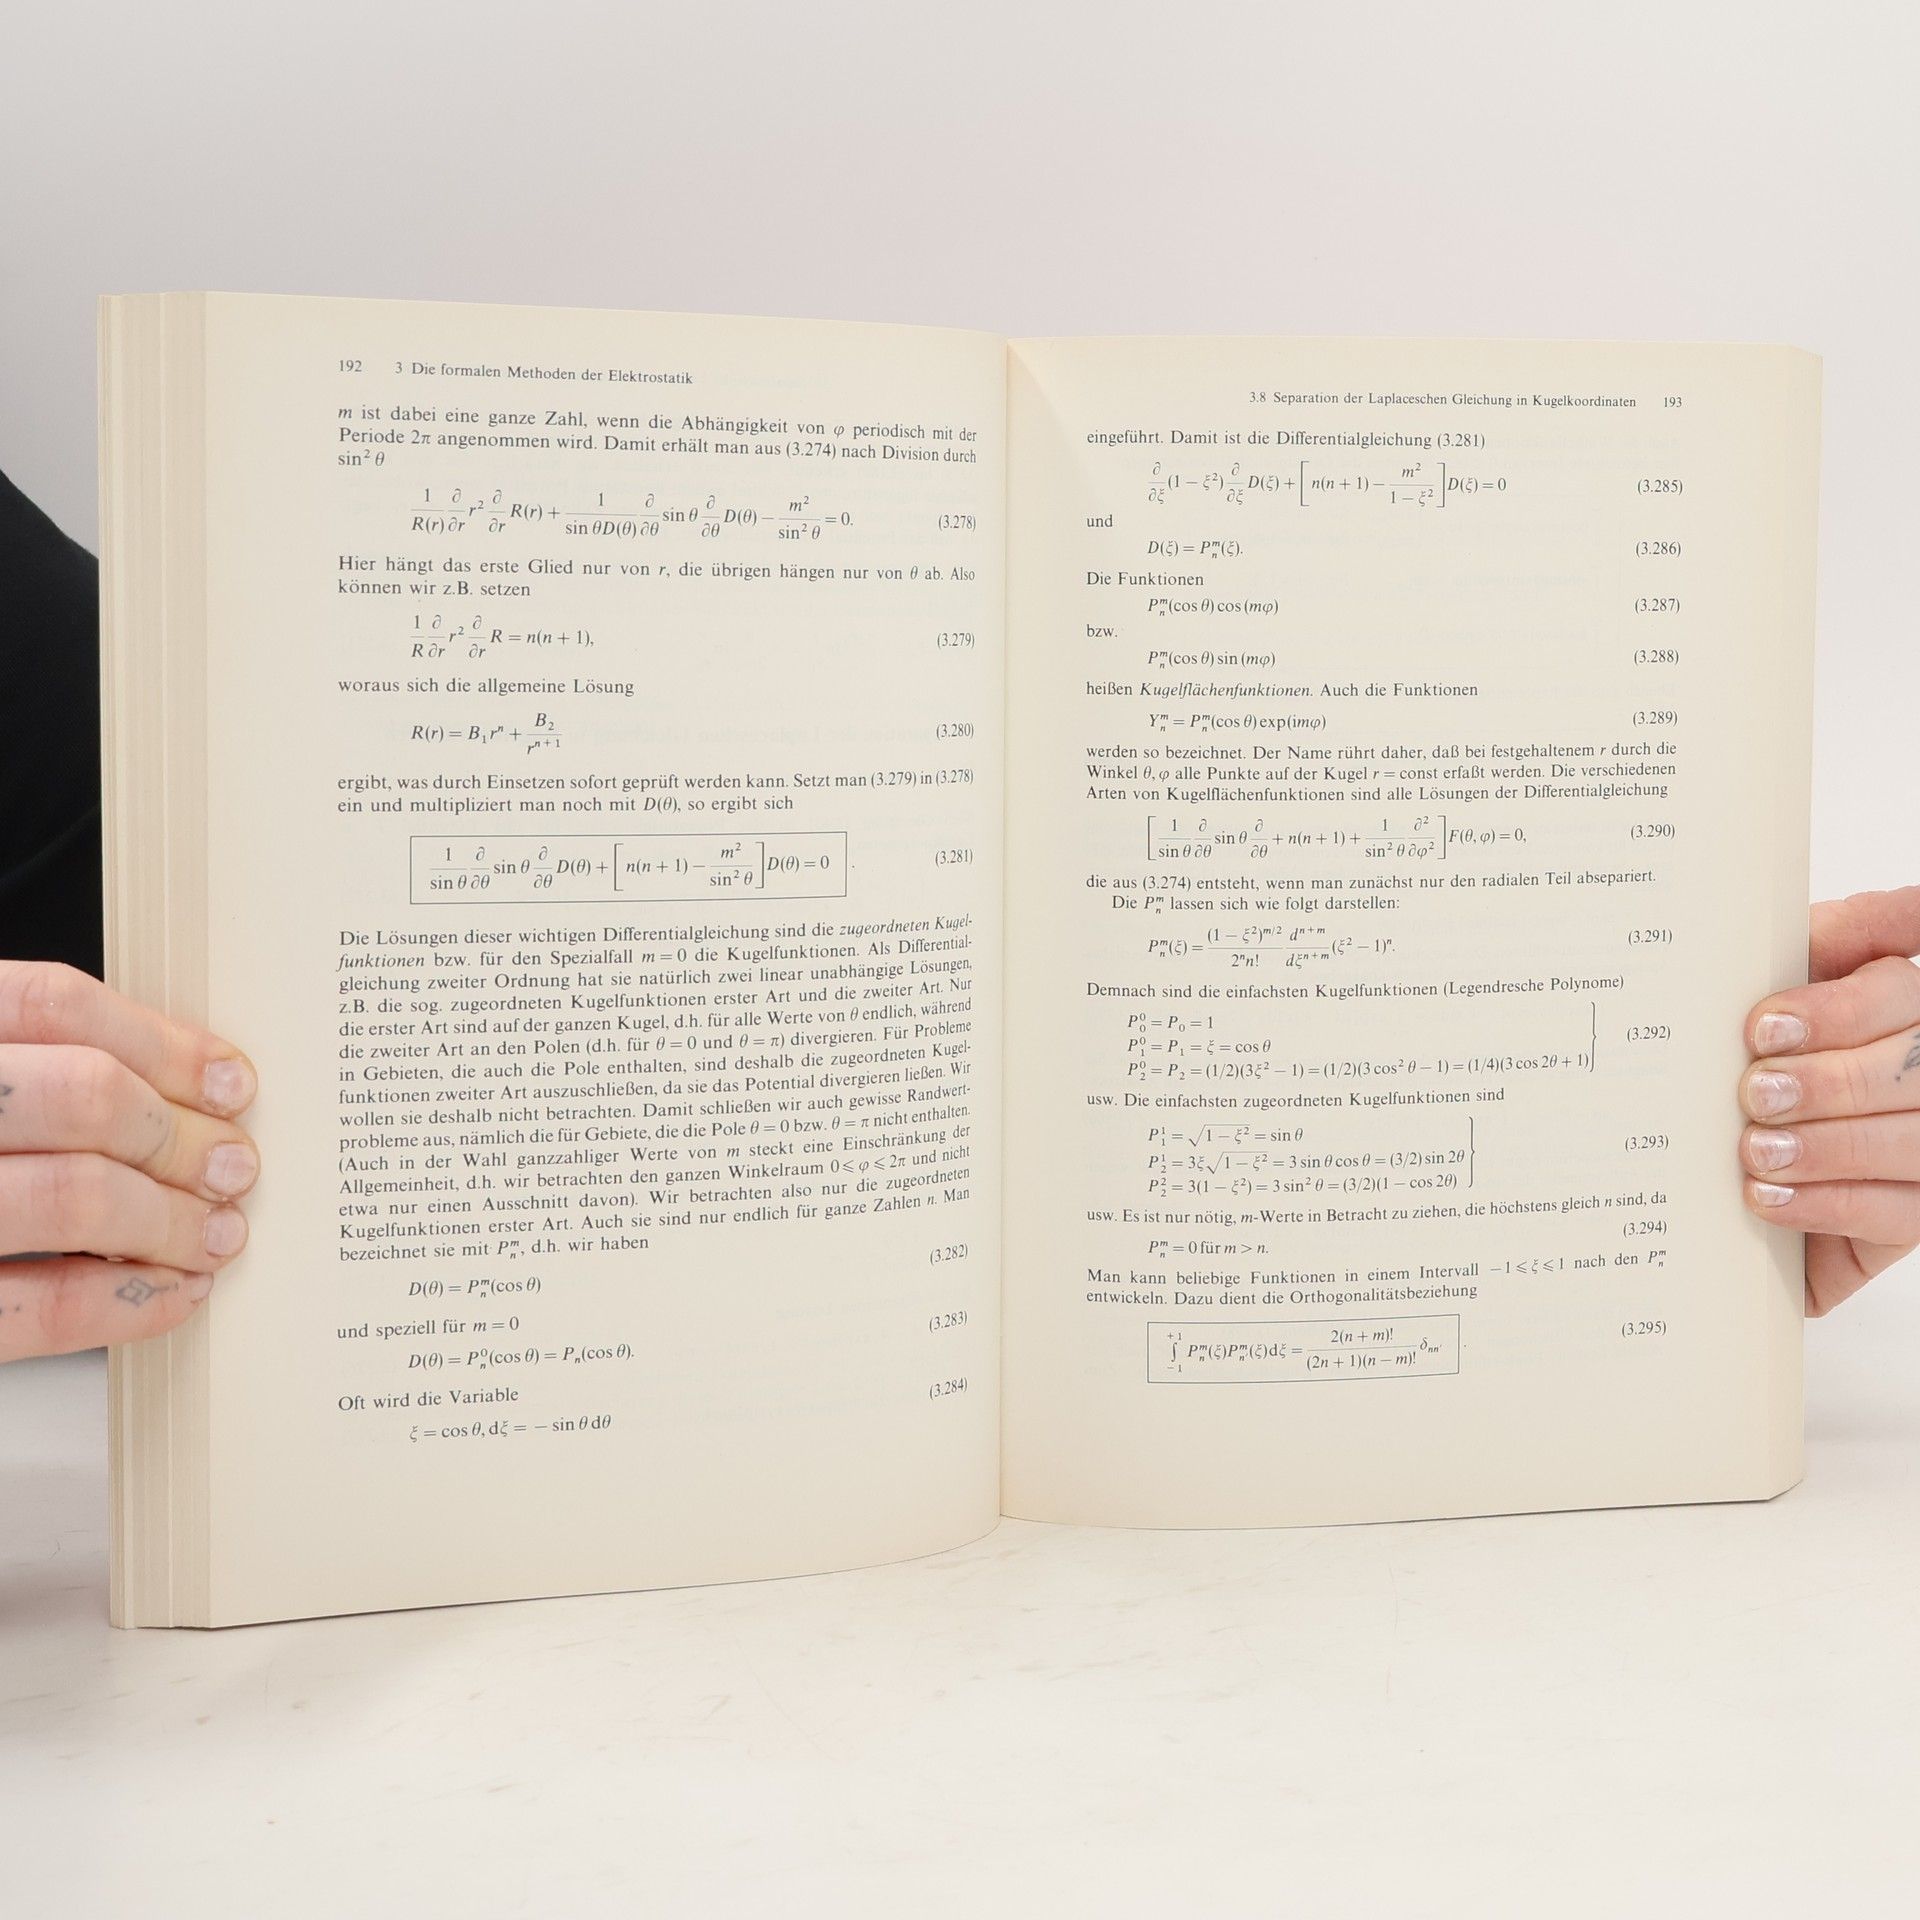 192 3 Die formalen Methoden der Elektrostatik
m ist dabei eine ganze Zahl, wenn die Abhängigkeit von φ periodisch mit der
Periode 2π angenommen wird. Damit erhält man aus (3.274) nach Division durch
sin² θ
1/R(r) ∂/∂r r² ∂/∂r R(r) + 1/(sin θD(θ)) ∂/∂θ sin θ ∂/∂θ D(θ) − m²/sin² θ = 0. (3.278)
Hier hängt das erste Glied nur von r, die übrigen hängen nur von θ ab. Also
können wir z.B. setzen
1/R ∂/∂r r² ∂/∂r R = n(n + 1), (3.279)
woraus sich die allgemeine Lösung
R(r) = B₁rⁿ + B₂/rⁿ⁺¹ (3.280)
ergibt, was durch Einsetzen sofort geprüft werden kann. Setzt man (3.279) in (3.278)
ein und multipliziert man noch mit D(θ), so ergibt sich
1/sin θ ∂/∂θ sin θ ∂/∂θ D(θ) + [n(n + 1) − m²/sin² θ]D(θ) = 0 . (3.281)
Die Lösungen dieser wichtigen Differentialgleichung sind die zugeordneten Kugel-
funktionen bzw. für den Spezialfall m = 0 die Kugelfunktionen. Als Differential-
gleichung zweiter Ordnung hat sie natürlich zwei linear unabhängige Lösungen,
z.B. die sog. zugeordneten Kugelfunktionen erster Art und die zweiter Art. Nur
die erster Art sind auf der ganzen Kugel, d.h. für alle Werte von θ endlich, während
die zweiter Art an den Polen (d.h. für θ = 0 und θ = π) divergieren. Für Probleme
in Gebieten, die auch die Pole enthalten, sind deshalb die zugeordneten Kugel-
funktionen zweiter Art auszuschließen, da sie das Potential divergieren ließen. Wir
wollen sie deshalb nicht betrachten. Damit schließen wir auch gewisse Randwert-
probleme aus, nämlich die für Gebiete, die die Pole θ = 0 bzw. θ = π nicht enthalten.
(Auch in der Wahl ganzzahliger Werte von m steckt eine Einschränkung der
Allgemeinheit, d.h. wir betrachten den ganzen Winkelraum 0 ⩽ φ ⩽ 2π und nicht
etwa nur einen Ausschnitt davon). Wir betrachten also nur die zugeordneten
Kugelfunktionen erster Art. Auch sie sind nur endlich für ganze Zahlen n. Man
bezeichnet sie mit Pₙᵐ, d.h. wir haben
D(θ) = Pₙᵐ(cos θ) (3.282)
und speziell für m = 0
D(θ) = Pₙ⁰(cos θ) = Pₙ(cos θ). (3.283)
Oft wird die Variable
ξ = cos θ, dξ = − sin θ dθ (3.284)
3.8 Separation der Laplaceschen Gleichung in Kugelkoordinaten 193
eingeführt. Damit ist die Differentialgleichung (3.281)
∂/∂ξ (1 − ξ²) ∂/∂ξ D(ξ) + [n(n + 1) − m²/(1 − ξ²)]D(ξ) = 0 (3.285)
und
D(ξ) = Pₙᵐ(ξ). (3.286)
Die Funktionen
Pₙᵐ(cos θ) cos (mφ) (3.287)
bzw.
Pₙᵐ(cos θ) sin (mφ) (3.288)
heißen Kugelflächenfunktionen. Auch die Funktionen
Yₙᵐ = Pₙᵐ(cos θ) exp(imφ) (3.289)
werden so bezeichnet. Der Name rührt daher, daß bei festgehaltenem r durch die
Winkel θ, φ alle Punkte auf der Kugel r = const erfaßt werden. Die verschiedenen
Arten von Kugelflächenfunktionen sind alle Lösungen der Differentialgleichung
[1/sin θ ∂/∂θ sin θ ∂/∂θ + n(n + 1) + 1/sin² θ ∂²/∂φ²]F(θ, φ) = 0, (3.290)
die aus (3.274) entsteht, wenn man zunächst nur den radialen Teil absepariert.
Die Pₙᵐ lassen sich wie folgt darstellen:
Pₙᵐ(ξ) = (1 − ξ²)^(m/2)/(2ⁿn!) dⁿ⁺ᵐ/dξⁿ⁺ᵐ (ξ² − 1)ⁿ. (3.291)
Demnach sind die einfachsten Kugelfunktionen (Legendresche Polynome)
P₀⁰ = P₀ = 1
P₁⁰ = P₁ = ξ = cos θ (3.292)
P₂⁰ = P₂ = (1/2)(3ξ² − 1) = (1/2)(3 cos² θ − 1) = (1/4)(3 cos 2θ + 1)
usw. Die einfachsten zugeordneten Kugelfunktionen sind
P₁¹ = √(1 − ξ²) = sin θ
P₂¹ = 3ξ√(1 − ξ²) = 3 sin θ cos θ = (3/2) sin 2θ (3.293)
P₂² = 3(1 − ξ²) = 3 sin² θ = (3/2)(1 − cos 2θ)
usw. Es ist nur nötig, m-Werte in Betracht zu ziehen, die höchstens gleich n sind, da
Pₙᵐ = 0 für m > n. (3.294)
Man kann beliebige Funktionen in einem Intervall −1 ⩽ ξ ⩽ 1 nach den Pₙᵐ
entwickeln. Dazu dient die Orthogonalitätsbeziehung
∫₋₁⁺¹ Pₙᵐ(ξ)Pₙ'ᵐ(ξ)dξ = 2(n + m)!/((2n + 1)(n − m)!) δₙₙ' . (3.295)